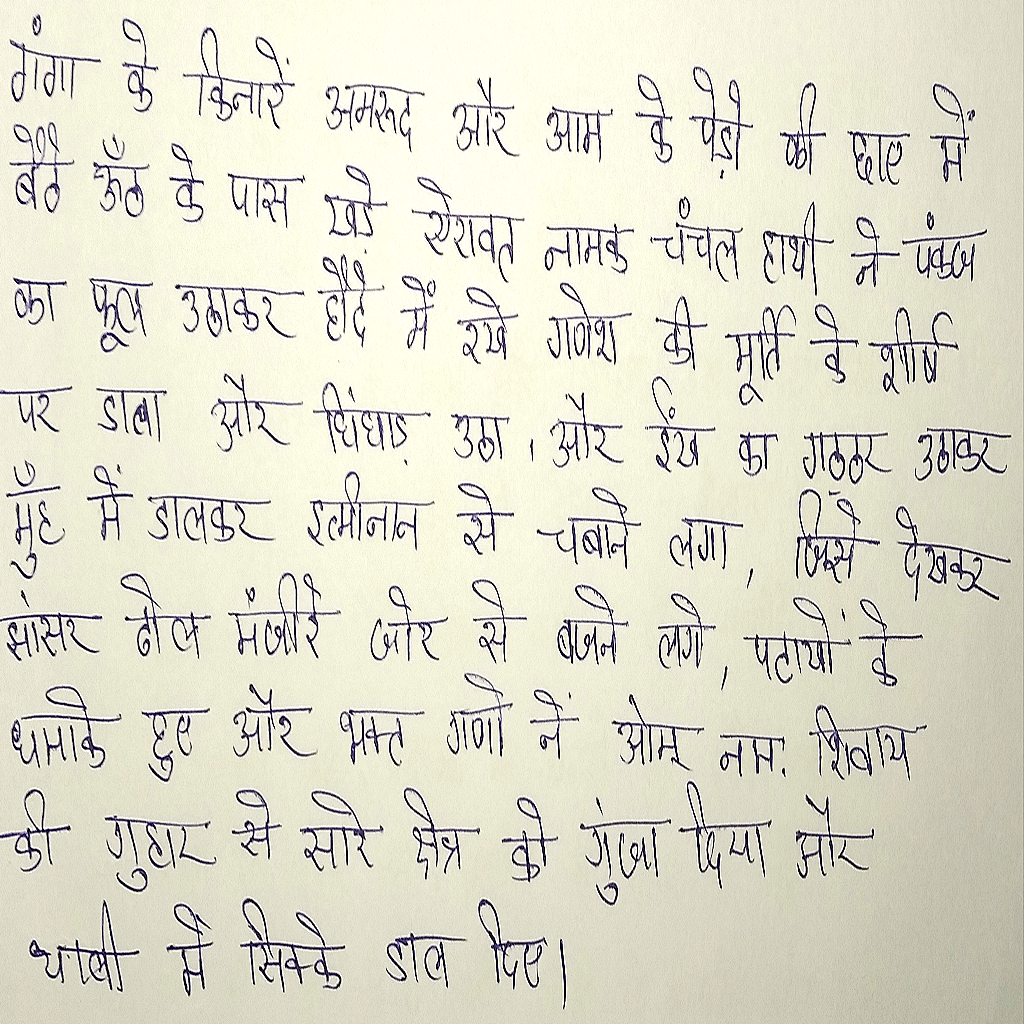 गंगा के किनारें अमरूद और आम के पेड़ो की छाए में
बैठै ऊँठ के पास खड़े ऐरावत नामक चंचल हाथी ने पंकज
का फूल उठाकर हौदे में रखे गणेश की मूर्ति के शीर्ष
पर डाला और चिंघाड़ उठा, और ईख का गठ्ठर उठाकर
मुँह में डालकर इत्मीनान से चबाने लगा, जिसे देखकर
झांसर ढोल मंजीरे जोर से बजने लगे, पटाखों के
धमाके हुए और भक्त गणो नें ओम नमः शिवाय
की गुहार से सारे क्षेत्र को गुंजा दिया और
थाली में सिक्के डाल दिए।